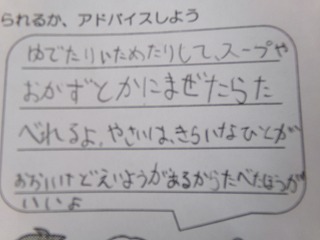 られるか、アドバイスしよう
ゆでたりいためたりして、スープや
おかずとかにまぜたらた
べれるよ、やさいは、きらいなひとが
おおいけどえいようがあるからたべたほうが
いいよ